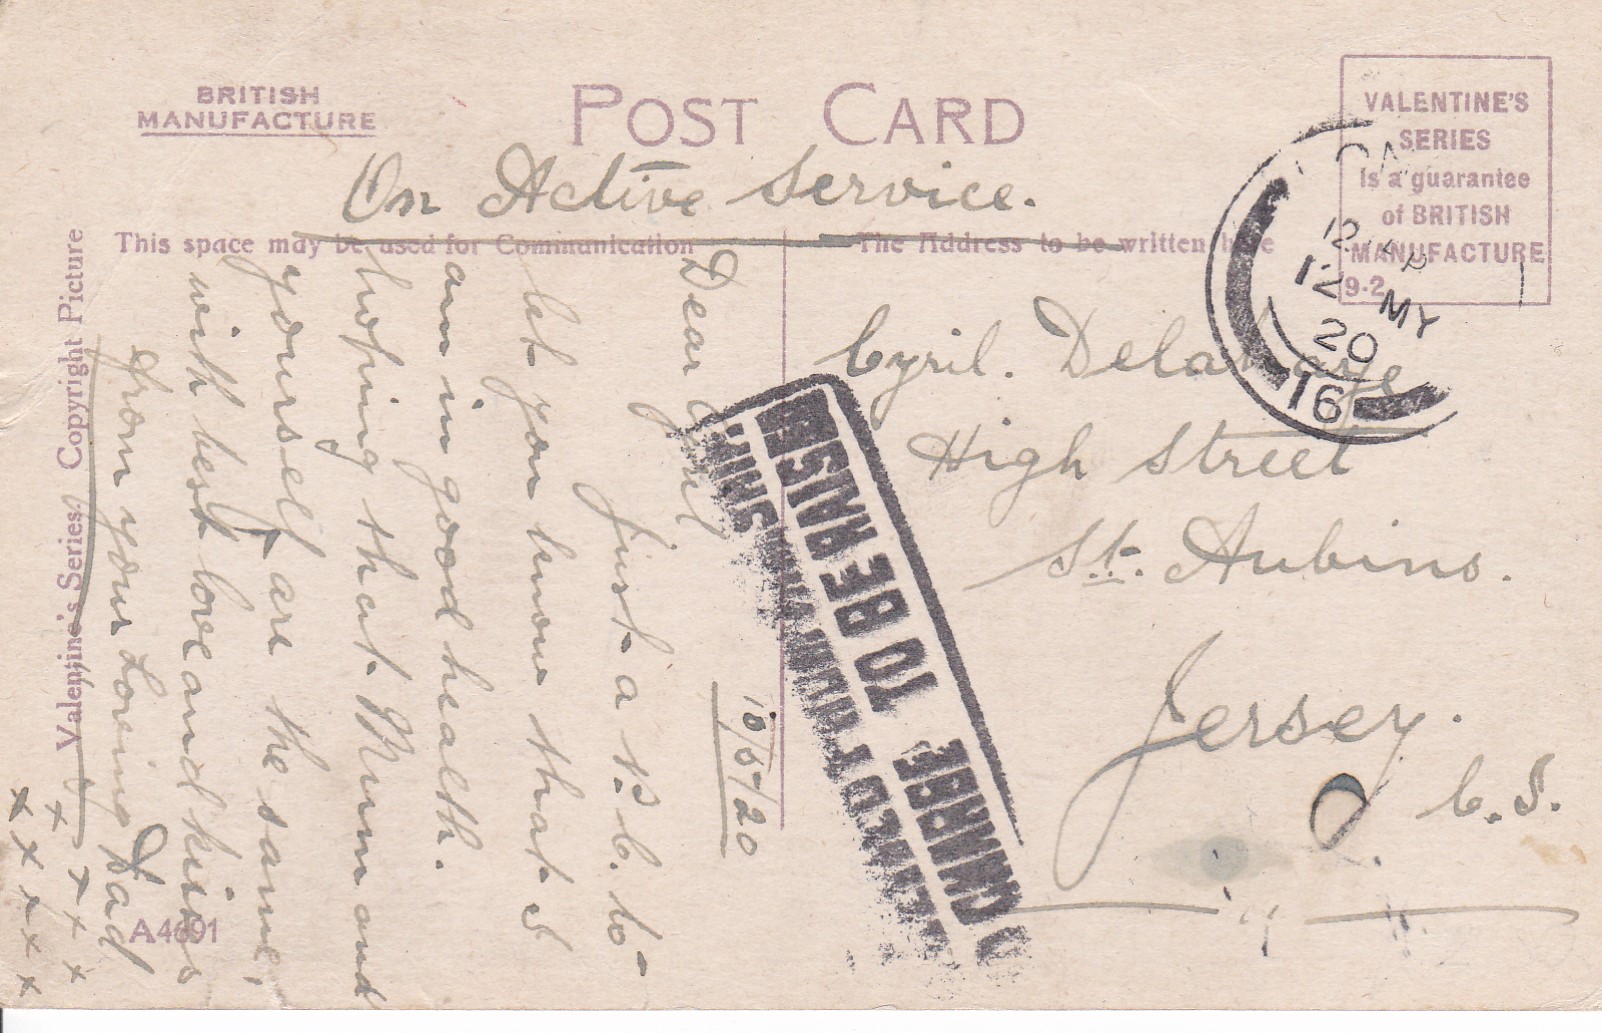 BRITISH
MANUFACTURE
POST CARD
VALENTINE'S
SERIES
Is a guarantee
of BRITISH
MANUFACTURE
9-2
On Active Service.
This space may be used for Communication
The Address to be written here
12
P
12 MY
20
16
10/5/20
Dear Cyril
Just a P.C. to
let you know that I
am in good health.
hoping that Mum and
yourself are the same,
with best love and kisses
from your Loving Dad
x x x x x
x x x x
Cyril. Delahaye
High Street
St. Aubins.
Jersey.
C.I.
CHARGE TO BE RAISED
Valentine's Series. Copyright Picture
A4691